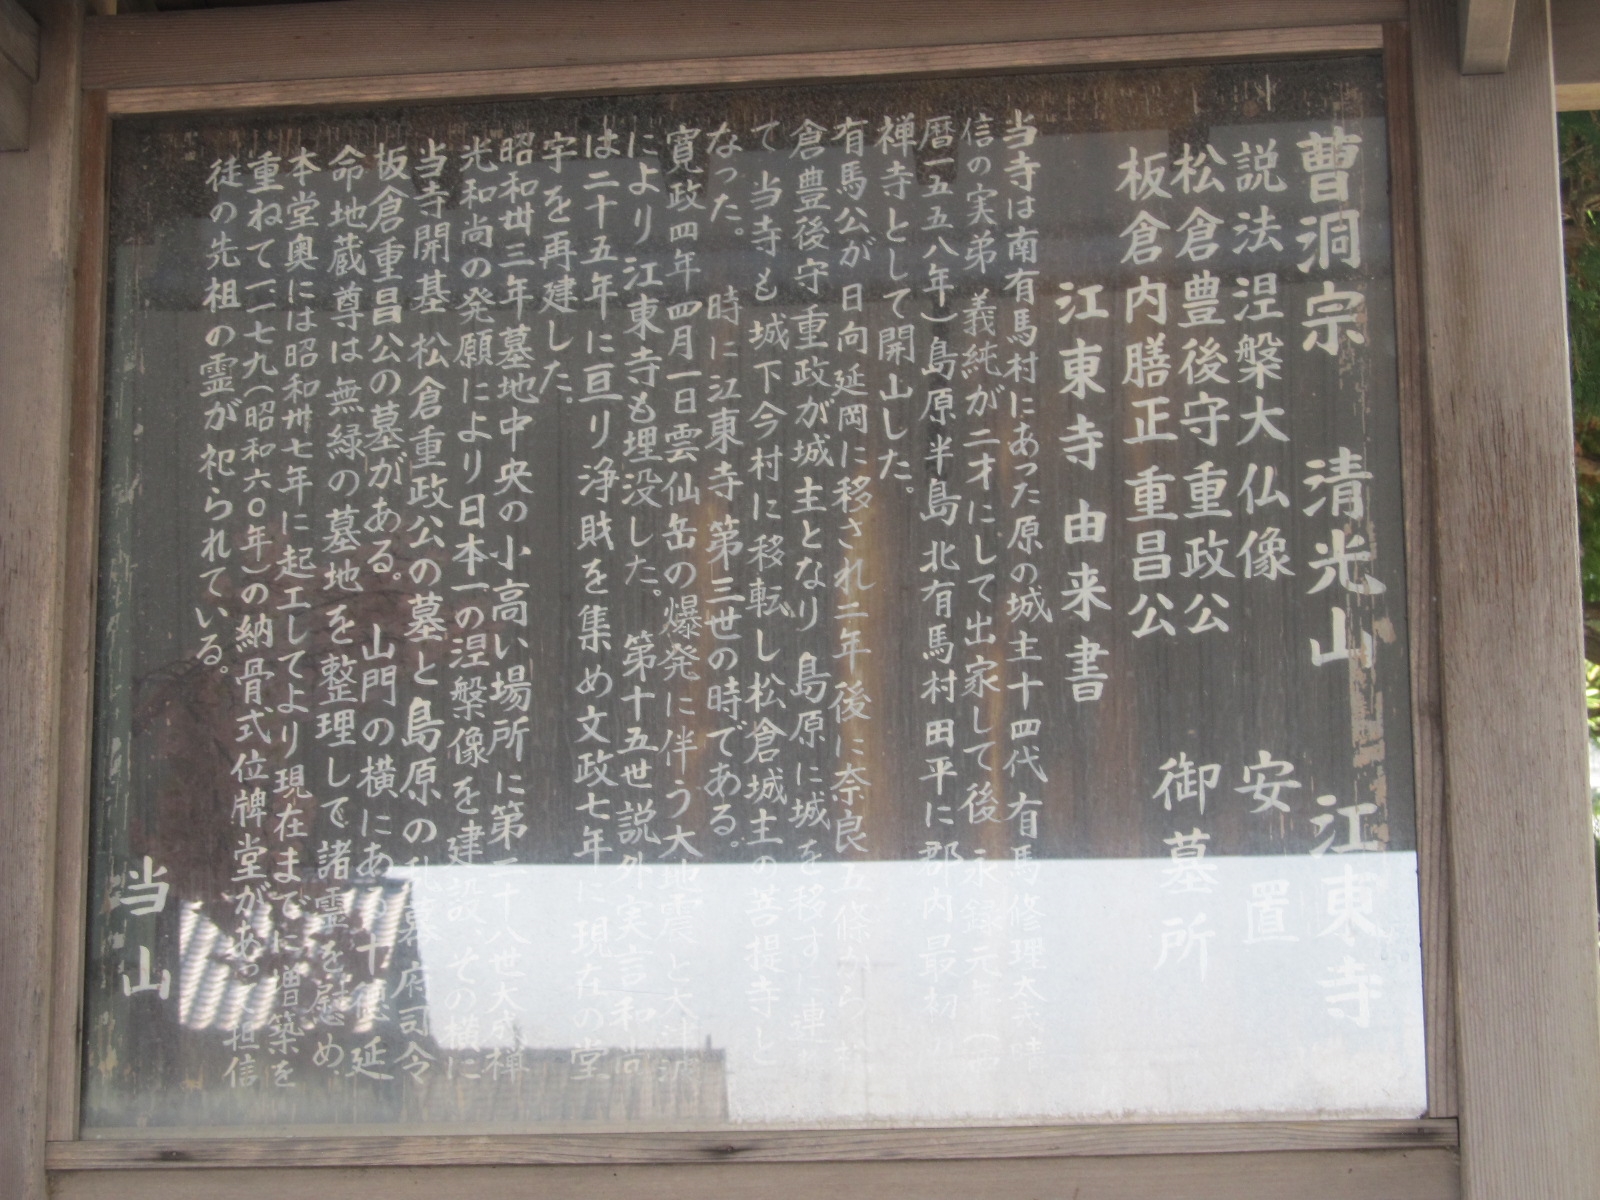 曹洞宗 清光山 江東寺
説法涅槃大仏像 安置
松倉豊後守重政公
板倉内膳正重昌公 御墓所
江東寺由来書
当寺は南有馬村にあった原の城主十四代有馬修理太夫晴
信の実弟 義純が二才にして出家して後 永禄元年(西
暦一五五八年)島原半島北有馬村田平に郡内最初の
禅寺として開山した。
有馬公が日向延岡に移され二年後に奈良五條から松
倉豊後守重政が城主となり 島原に城を移すに連
て当寺も城下今村に移転し松倉城主の菩提寺と
なった。 時に江東寺第三世の時である。
寛政四年四月一日雲仙岳の爆発に伴う大地震と大津波
により江東寺も埋没した。 第十五世説外実言和尚
は二十五年に亘り浄財を集め文政七年に現在の堂
宇を再建した。
昭和丗三年墓地中央の小高い場所に第二十八世大成禅
光和尚の発願により日本一の涅槃像を建設、その横に
当寺開基 松倉重政公の墓と島原の乱幕府司令
板倉重昌公の墓がある。 山門の横にある十徳延
命地蔵尊は無緑の墓地を整理して諸霊を慰め、
本堂奥には昭和丗七年に起工してより現在までに増築を
重ねて一二七九(昭和六〇年)の納骨式位牌堂があって担信
徒の先祖の霊が祀られている。
当山